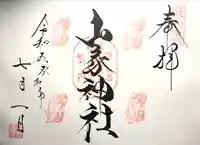 奉拝
山家神社
令和五癸卯年
七月一日